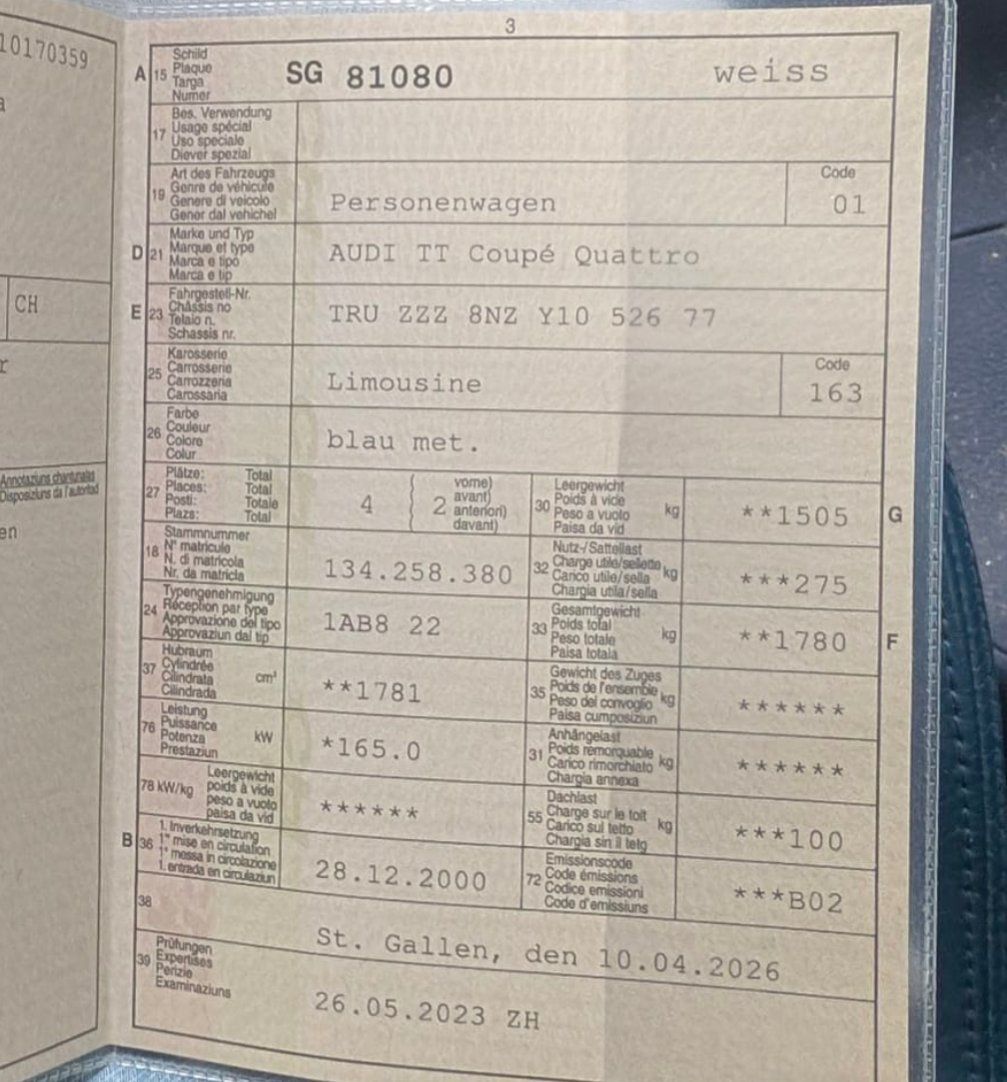 3
10170359
a
CH
r
Annotaziuns chantunalas
Disposiziuns da l'autoritad
en
A 15 Schild
Plaque
Targa
Numer
SG 81080 weiss
17 Bes. Verwendung
Usage spécial
Uso speciale
Diever spezial
19 Art des Fahrzeugs
Genre de véhicule
Genere di veicolo
Gener dal vehichel
Personenwagen
Code
01
D 21 Marke und Typ
Marque et type
Marca e tipo
Marca e tip
AUDI TT Coupé Quattro
E 23 Fahrgestell-Nr.
Châssis no
Telaio n.
Schassis nr.
TRU ZZZ 8NZ Y10 526 77
25 Karosserie
Carrosserie
Carrozzeria
Carossaria
Limousine
Code
163
26 Farbe
Couleur
Colore
Colur
blau met.
27 Plätze: Total
Places: Total
Posti: Totale
Plazs: Total
4 ( 2 vorne)
avant)
anteriori)
davant)
30 Leergewicht
Poids à vide
Peso a vuoto
Paisa da vid
kg
**1505 G
18 Stammnummer
N° matricule
N. di matricola
Nr. da matricla
134.258.380
32 Nutz-/Sattellast
Charge utile/sellette
Carico utile/sella
Chargia utila/sella
kg
***275
24 Typengenehmigung
Réception par type
Approvazione del tipo
Approvaziun dal tip
1AB8 22
33 Gesamtgewicht
Poids total
Peso totale
Paisa totala
kg
**1780 F
37 Hubraum
Cylindrée
Cilindrata
Cilindrada
cm³
**1781
35 Gewicht des Zuges
Poids de l'ensemble
Peso del convoglio
Paisa cumposiziun
kg
******
76 Leistung
Puissance
Potenza
Prestaziun
kW
*165.0
31 Anhängelast
Poids remorquable
Carico rimorchiato
Chargia annexa
kg
******
78 kW/kg Leergewicht
poids à vide
peso a vuoto
paisa da vid
******
55 Dachlast
Charge sur le toit
Carico sul tetto
Chargia sin il tetg
kg
***100
B 36 1. Inverkehrsetzung
1re mise en circulation
1a messa in circolazione
1. entrada en circulaziun
28.12.2000
72 Emissionscode
Code émissions
Codice emissioni
Code d'emissiuns
***B02
38
St. Gallen, den 10.04.2026
39 Prüfungen
Expertises
Perizie
Examinaziuns
26.05.2023 ZH